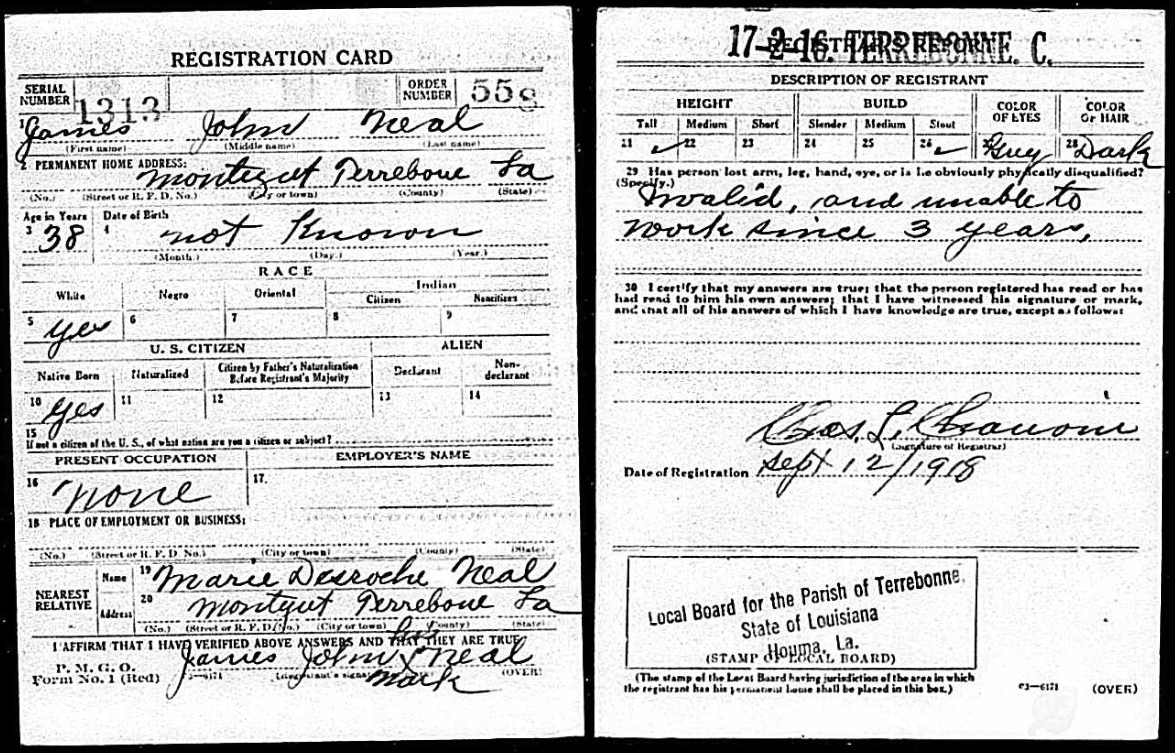 REGISTRATION CARD
SERIAL NUMBER 1313 ORDER NUMBER 558
1 James John Neal
(First name) (Middle name) (Last name)
2 PERMANENT HOME ADDRESS:
Montegut Terrebone La
(No.) (Street or R. F. D. No.) (City or town) (County) (State)
Age in Years Date of Birth
3 38 4 not Known
(Month.) (Day.) (Year.)
RACE
White Negro Oriental Indian
Citizen Noncitizen
5 yes 6 7 8 9
U. S. CITIZEN ALIEN
Native Born Naturalized Citizen by Father's Naturalization Before Registrant's Majority Declarant Non-declarant
10 yes 11 12 13 14
15
If not a citizen of the U. S., of what nation are you a citizen or subject?
PRESENT OCCUPATION EMPLOYER'S NAME
16 none 17.
18 PLACE OF EMPLOYMENT OR BUSINESS:
(No.) (Street or R. F. D. No.) (City or town) (County) (State)
NEAREST RELATIVE Name 19 Marie Desroche Neal
Address 20 Montgut Terrebone La
(No.) (Street or R. F. D. No.) (City or town) (County) (State)
I AFFIRM THAT I HAVE VERIFIED ABOVE ANSWERS AND THAT THEY ARE TRUE
his
P. M. G. O. James John X Neal
Form No. 1 (Red) 03-6171 (Registrant's signature or mark) (OVER)
mark
17-2-16. TERREBONNE. C.
REGISTRAR'S REPORT
DESCRIPTION OF REGISTRANT
HEIGHT BUILD COLOR OF EYES COLOR OF HAIR
Tall Medium Short Slender Medium Stout
21 ✓ 22 23 24 25 26 ✓ 27 Grey 28 Dark
29 Has person lost arm, leg, hand, eye, or is he obviously physically disqualified?
(Specify.)
Invalid, and unable to
work since 3 years,
30 I certify that my answers are true; that the person registered has read or has
had read to him his own answers; that I have witnessed his signature or mark,
and that all of his answers of which I have knowledge are true, except as follows:
Chas. L.
(Signature of Registrar)
Date of Registration Sept 12/1918
Local Board for the Parish of Terrebonne,
State of Louisiana
Houma, La.
(STAMP OF LOCAL BOARD)
(The stamp of the Local Board having jurisdiction of the area in which
the registrant has his permanent home shall be placed in this box.)
03-6171 (OVER)